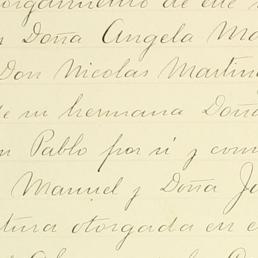 orgamiento de este
Doña Angela Ma
Don Nicolas Martin
de su hermana Doña
n Pablo por si y com
Manuel y Doña Jo
tura otorgada en e